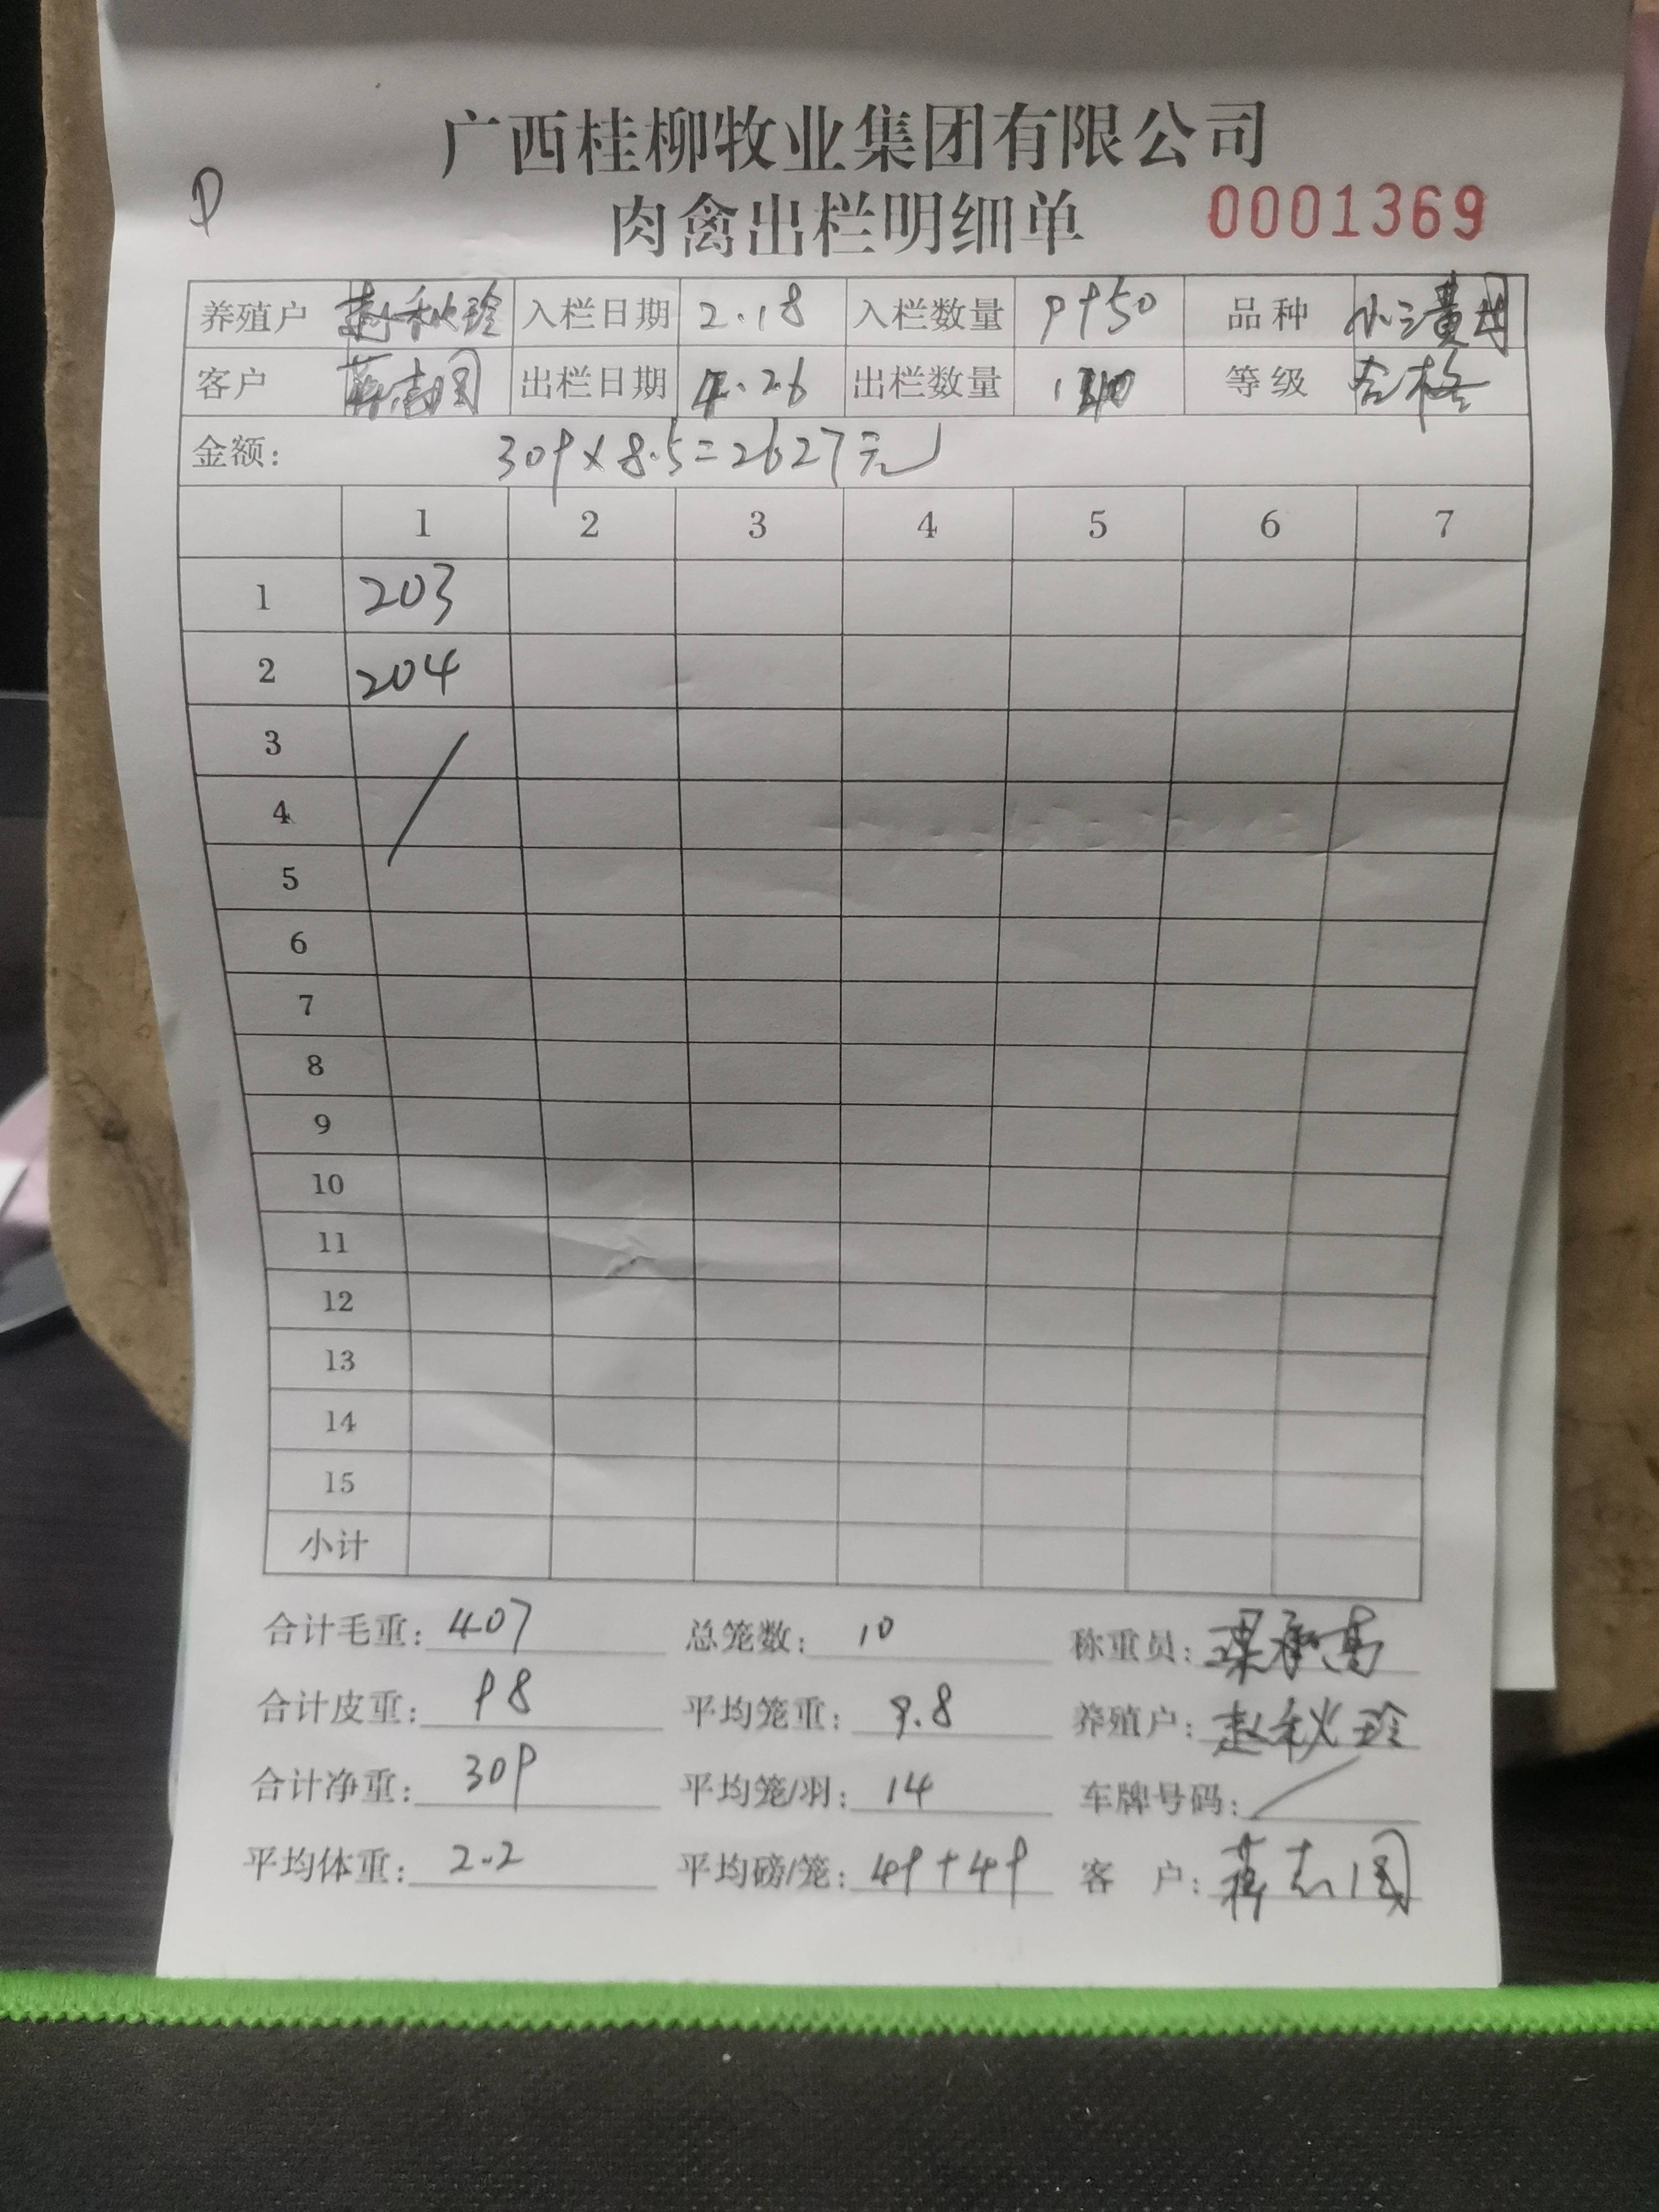 广西桂柳牧业集团有限公司
肉禽出栏明细单 0001369
养殖户 赵秋玲 入栏日期 2.18 入栏数量 9950 品种 小三黄
客户 蒋志国 出栏日期 4.26 出栏数量 等级 合格
金额: 309×8.5=2627元
1 2 3 4 5 6 7
1 203
2 204
3
4
5
6
7
8
9
10
11
12
13
14
15
小计
合计毛重: 407 总笼数: 10 称重员: 梁承高
合计皮重: 98 平均笼重: 9.8 养殖户: 赵秋玲
合计净重: 309 平均笼/羽: 14 车牌号码: /
平均体重: 2.2 平均磅/笼: 49+49 客 户: 蒋志国